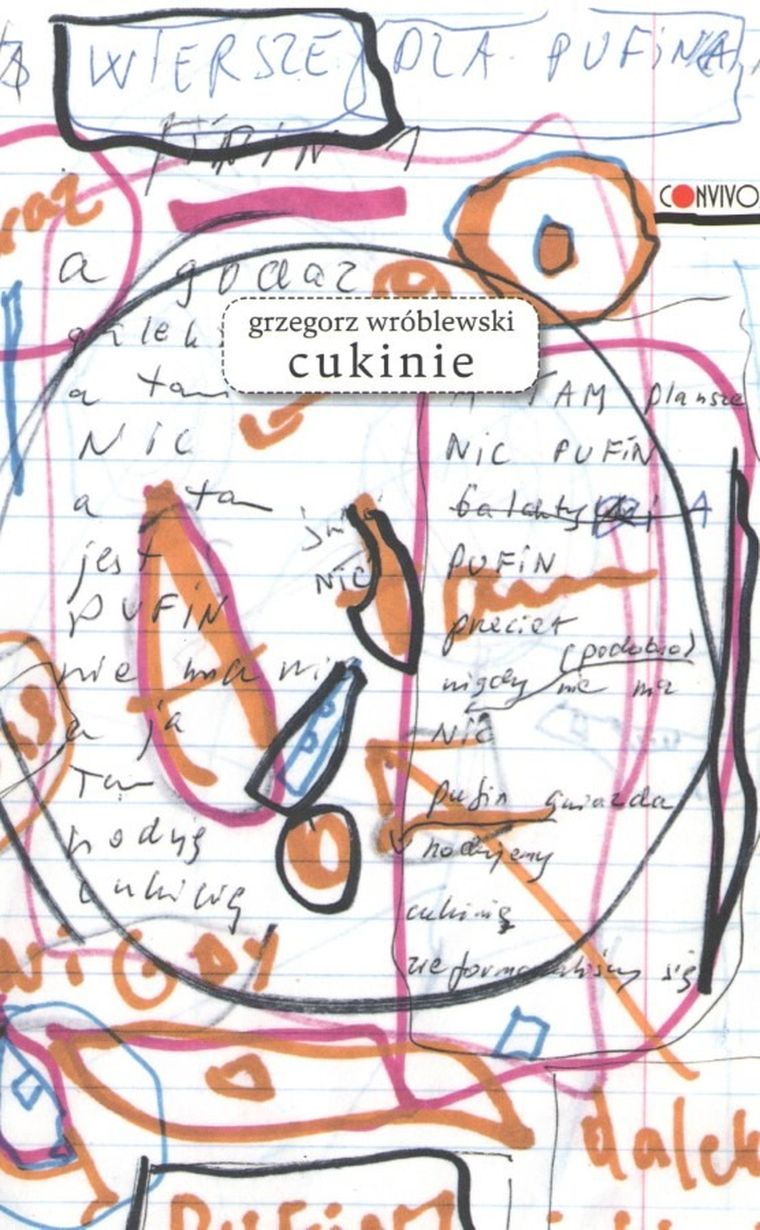 WIERSZE DLA PUFINA
CONVIVO
raz
a godaz
grzegorz wróblewski
cukinie
a tam
TAM plansze
NIC
NIC PUFIN
a tam
jest
NIC
PUFIN
PUFIN
przecież
nie ma nic
(podobno)
nigdy nie ma
a ja
NIC
Tam
pufin gwiazda
hoduję
hodujemy
cukinię
cukinię
zreformowaliśmy się
NIGDY
dalek
PUFIN